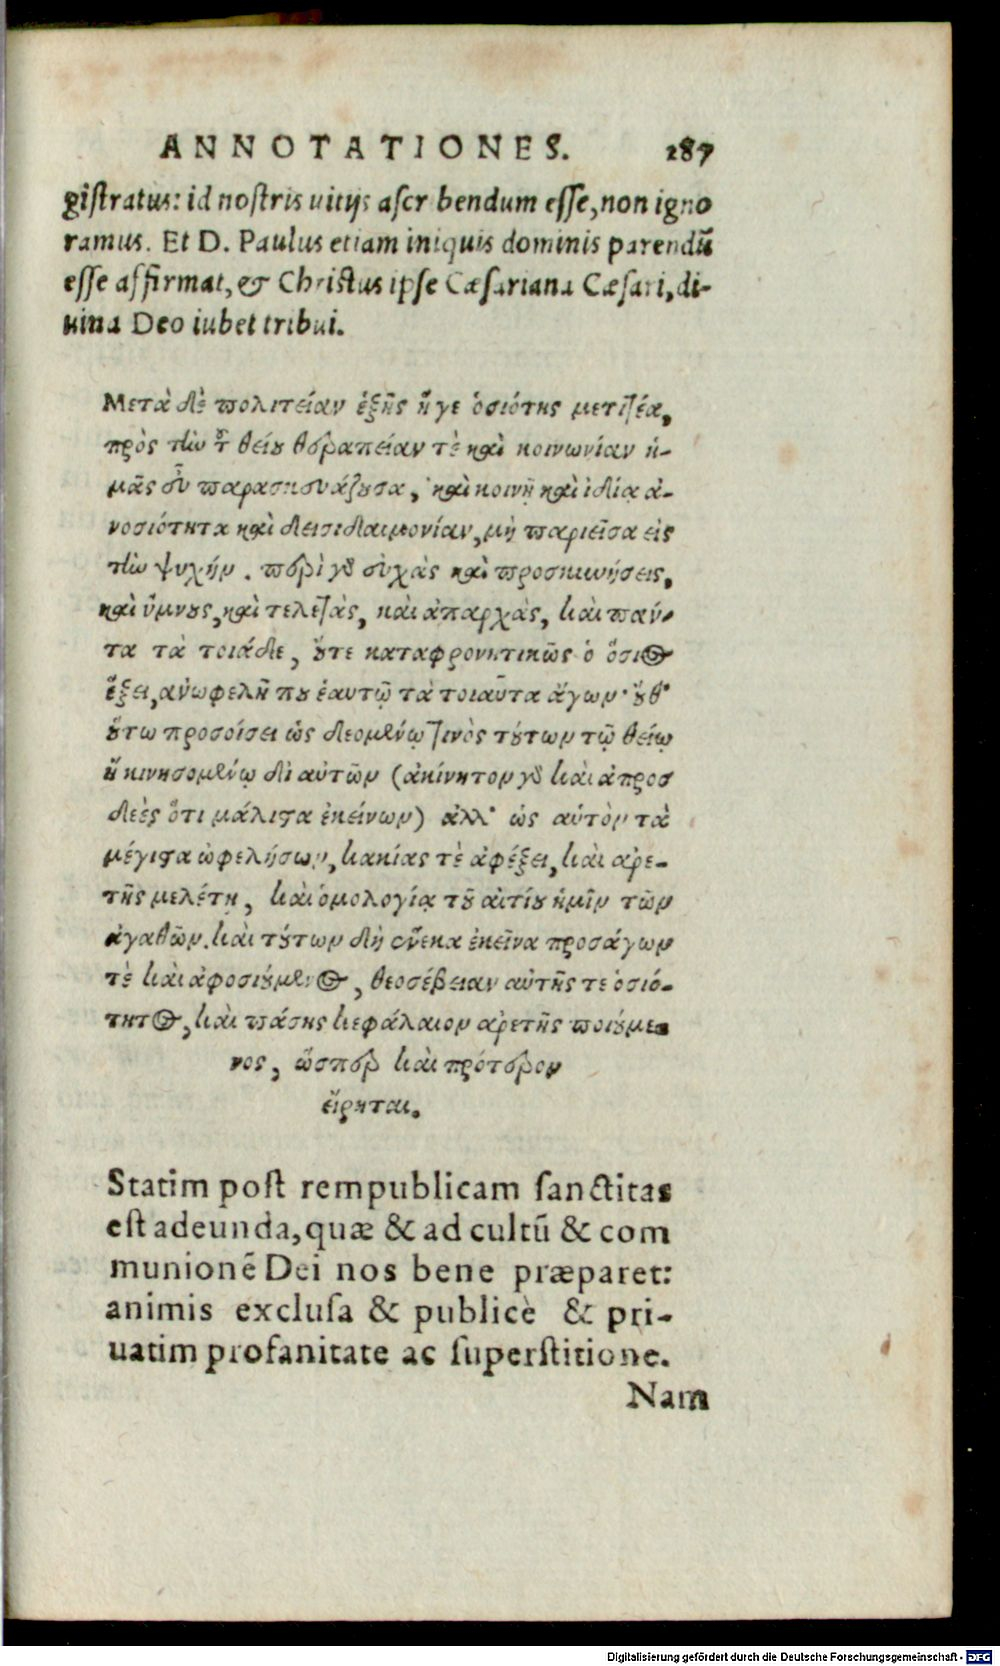 ANNOTATIONES. 187
gistratus: id nostris uitijs ascr bendum esse, non igno
ramus. Et D. Paulus etiam iniquis dominis parendū
esse affirmat, & Christus ipse Cæsariana Cæsari, di-
uina Deo iubet tribui.
Μετὰ δὲ πολιτείαν ἑξῆς ἥγε ὁσιότης μετιτέα,
πρὸς τὴν τ θείου θεραπείαν τὲ καὶ κοινωνίαν ἡ-
μᾶς εὖ παρασκευάζουσα, καὶ κοινῇ καὶ ἰδία ἀ-
νοσιότητα καὶ δεισιδαιμονίαν, μὴ παριεῖσα εἰς
τὴν ψυχήν. περὶ γὸ εὐχὰς καὶ προσκυνήσεις,
καὶ ὕμνους, καὶ τελετὰς, καὶ ἀπαρχὰς, καὶ πάν-
τα τὰ τοιάδε, οὔτε καταφρονητικῶς ὁ ὅσιος
ἕξει, ἀνωφελῆ που ἑαυτῷ τὰ τοιαῦτα ἄγων· οὔθ'
οὕτω προσοίσει ὡς δεομένῳ τινὸς τούτων τῷ θείῳ
ἢ κινησομένῳ δι αὐτῶν (ἀκίνητον γὸ καὶ ἀπροσ
δεὲς ὅτι μάλιστα ἐκείνων) ἀλλ' ὡς αὑτὸν τὰ
μέγιστα ὠφελήσων, κακίας τὲ ἀφέξει, καὶ ἀρε-
τῆς μελέτῃ, καὶ ὁμολογίᾳ τοῦ αἰτίου ἡμῖν τῶν
ἀγαθῶν. καὶ τούτων δὴ οὕνεκα ἐκεῖνα προσάγων
τὲ καὶ ἀφοσιούμενος, θεοσέβειαν αὐτῆς τε ὁσιό-
τητος, καὶ πάσης κεφάλαιον ἀρετῆς ποιούμε-
νος, ὥσπερ καὶ πρότερον
εἴρηται.
Statim post rempublicam sanctitas
est adeunda, quæ & ad cultū & com
munionē Dei nos bene præparet:
animis exclusa & publicè & pri-
uatim profanitate ac superstitione.
Nam
Digitalisierung gefördert durch die Deutsche Forschungsgemeinschaft - DFG